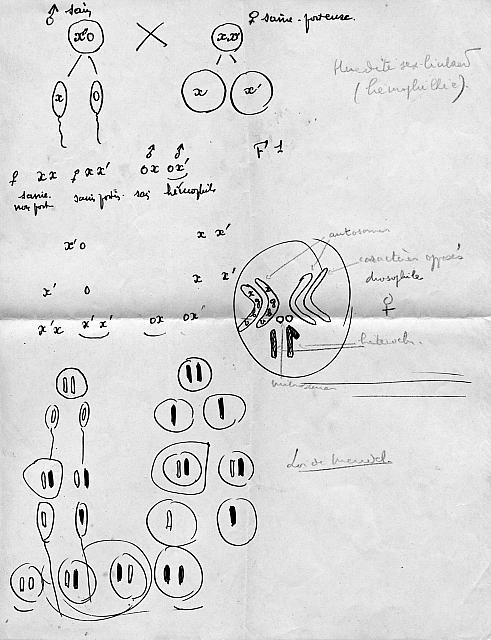 ♂ sain
♀ saine-porteuse.
x'o
X
xx'
Hérédité sex-linked
(hémophilie).
x
o
x
x'
♂ ♂
F 1
♀ xx ♀ xx' ox ox'
saine
non port
hémophile
x'o
x x'
autosomes
caractères opposés
drosophile
♀
x' o
x x'
x'x x'x' ox ox'
hétéroch.
Loi de Mendel.